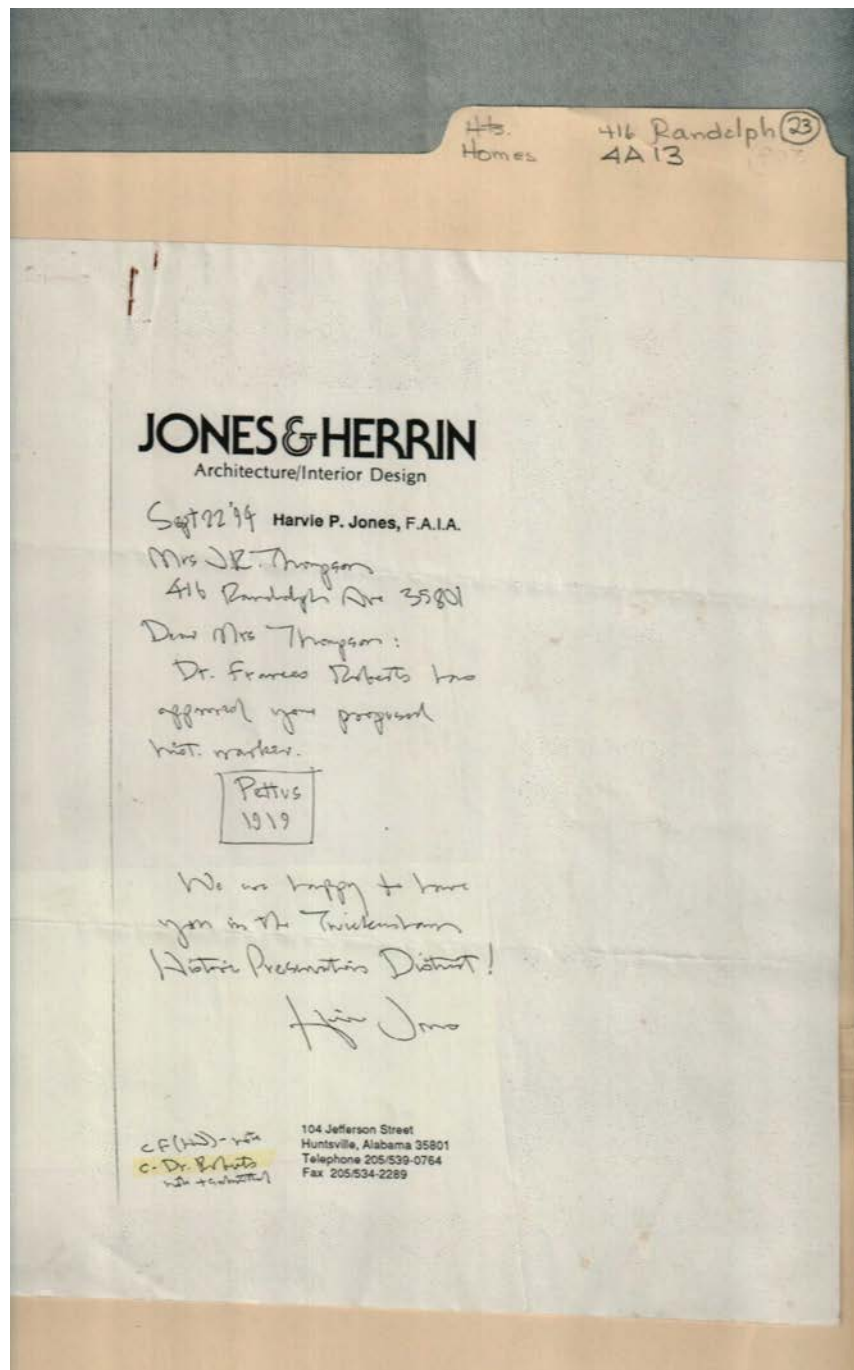 Hts. 416 Randolph 23
Homes 4A13
JONES & HERRIN
Architecture/Interior Design
Sept 22 '94 Harvie P. Jones, F.A.I.A.
Mrs J.R. Thompson
416 Randolph Ave 35801
Dear Mrs Thompson:
Dr. Frances Roberts has
approved your proposed
hist. marker.
Pettus
1919
We are happy to have
you in the Twickenham
Historic Preservation District!
Harvie Jones
c-Dr. Roberts
104 Jefferson Street
Huntsville, Alabama 35801
Telephone 205/539-0764
Fax 205/534-2289